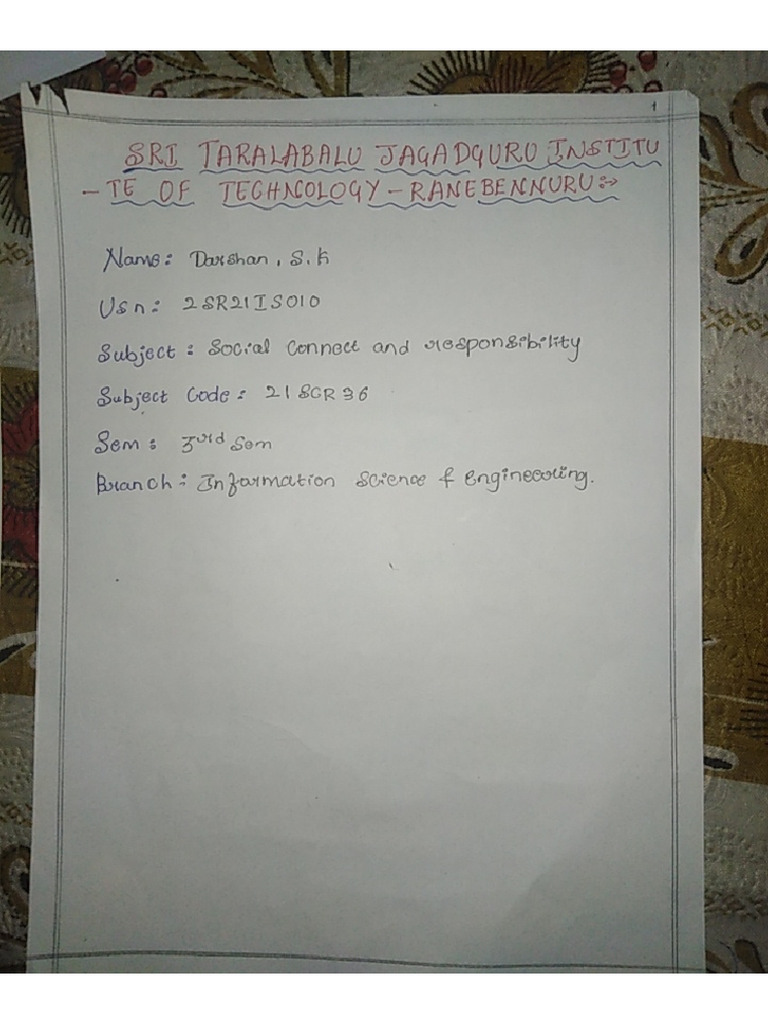 1
SRI TARALABALU JAGADGURU INSTITU
-TE OF TECHNOLOGY-RANEBENNURU:->
Name: Darshan, S.K
Usn: 2SR21IS010
Subject: Social Connect and responsibility
Subject Code: 21SCR36
Sem: 3rd Sem
Branch: Information Science & engineering.